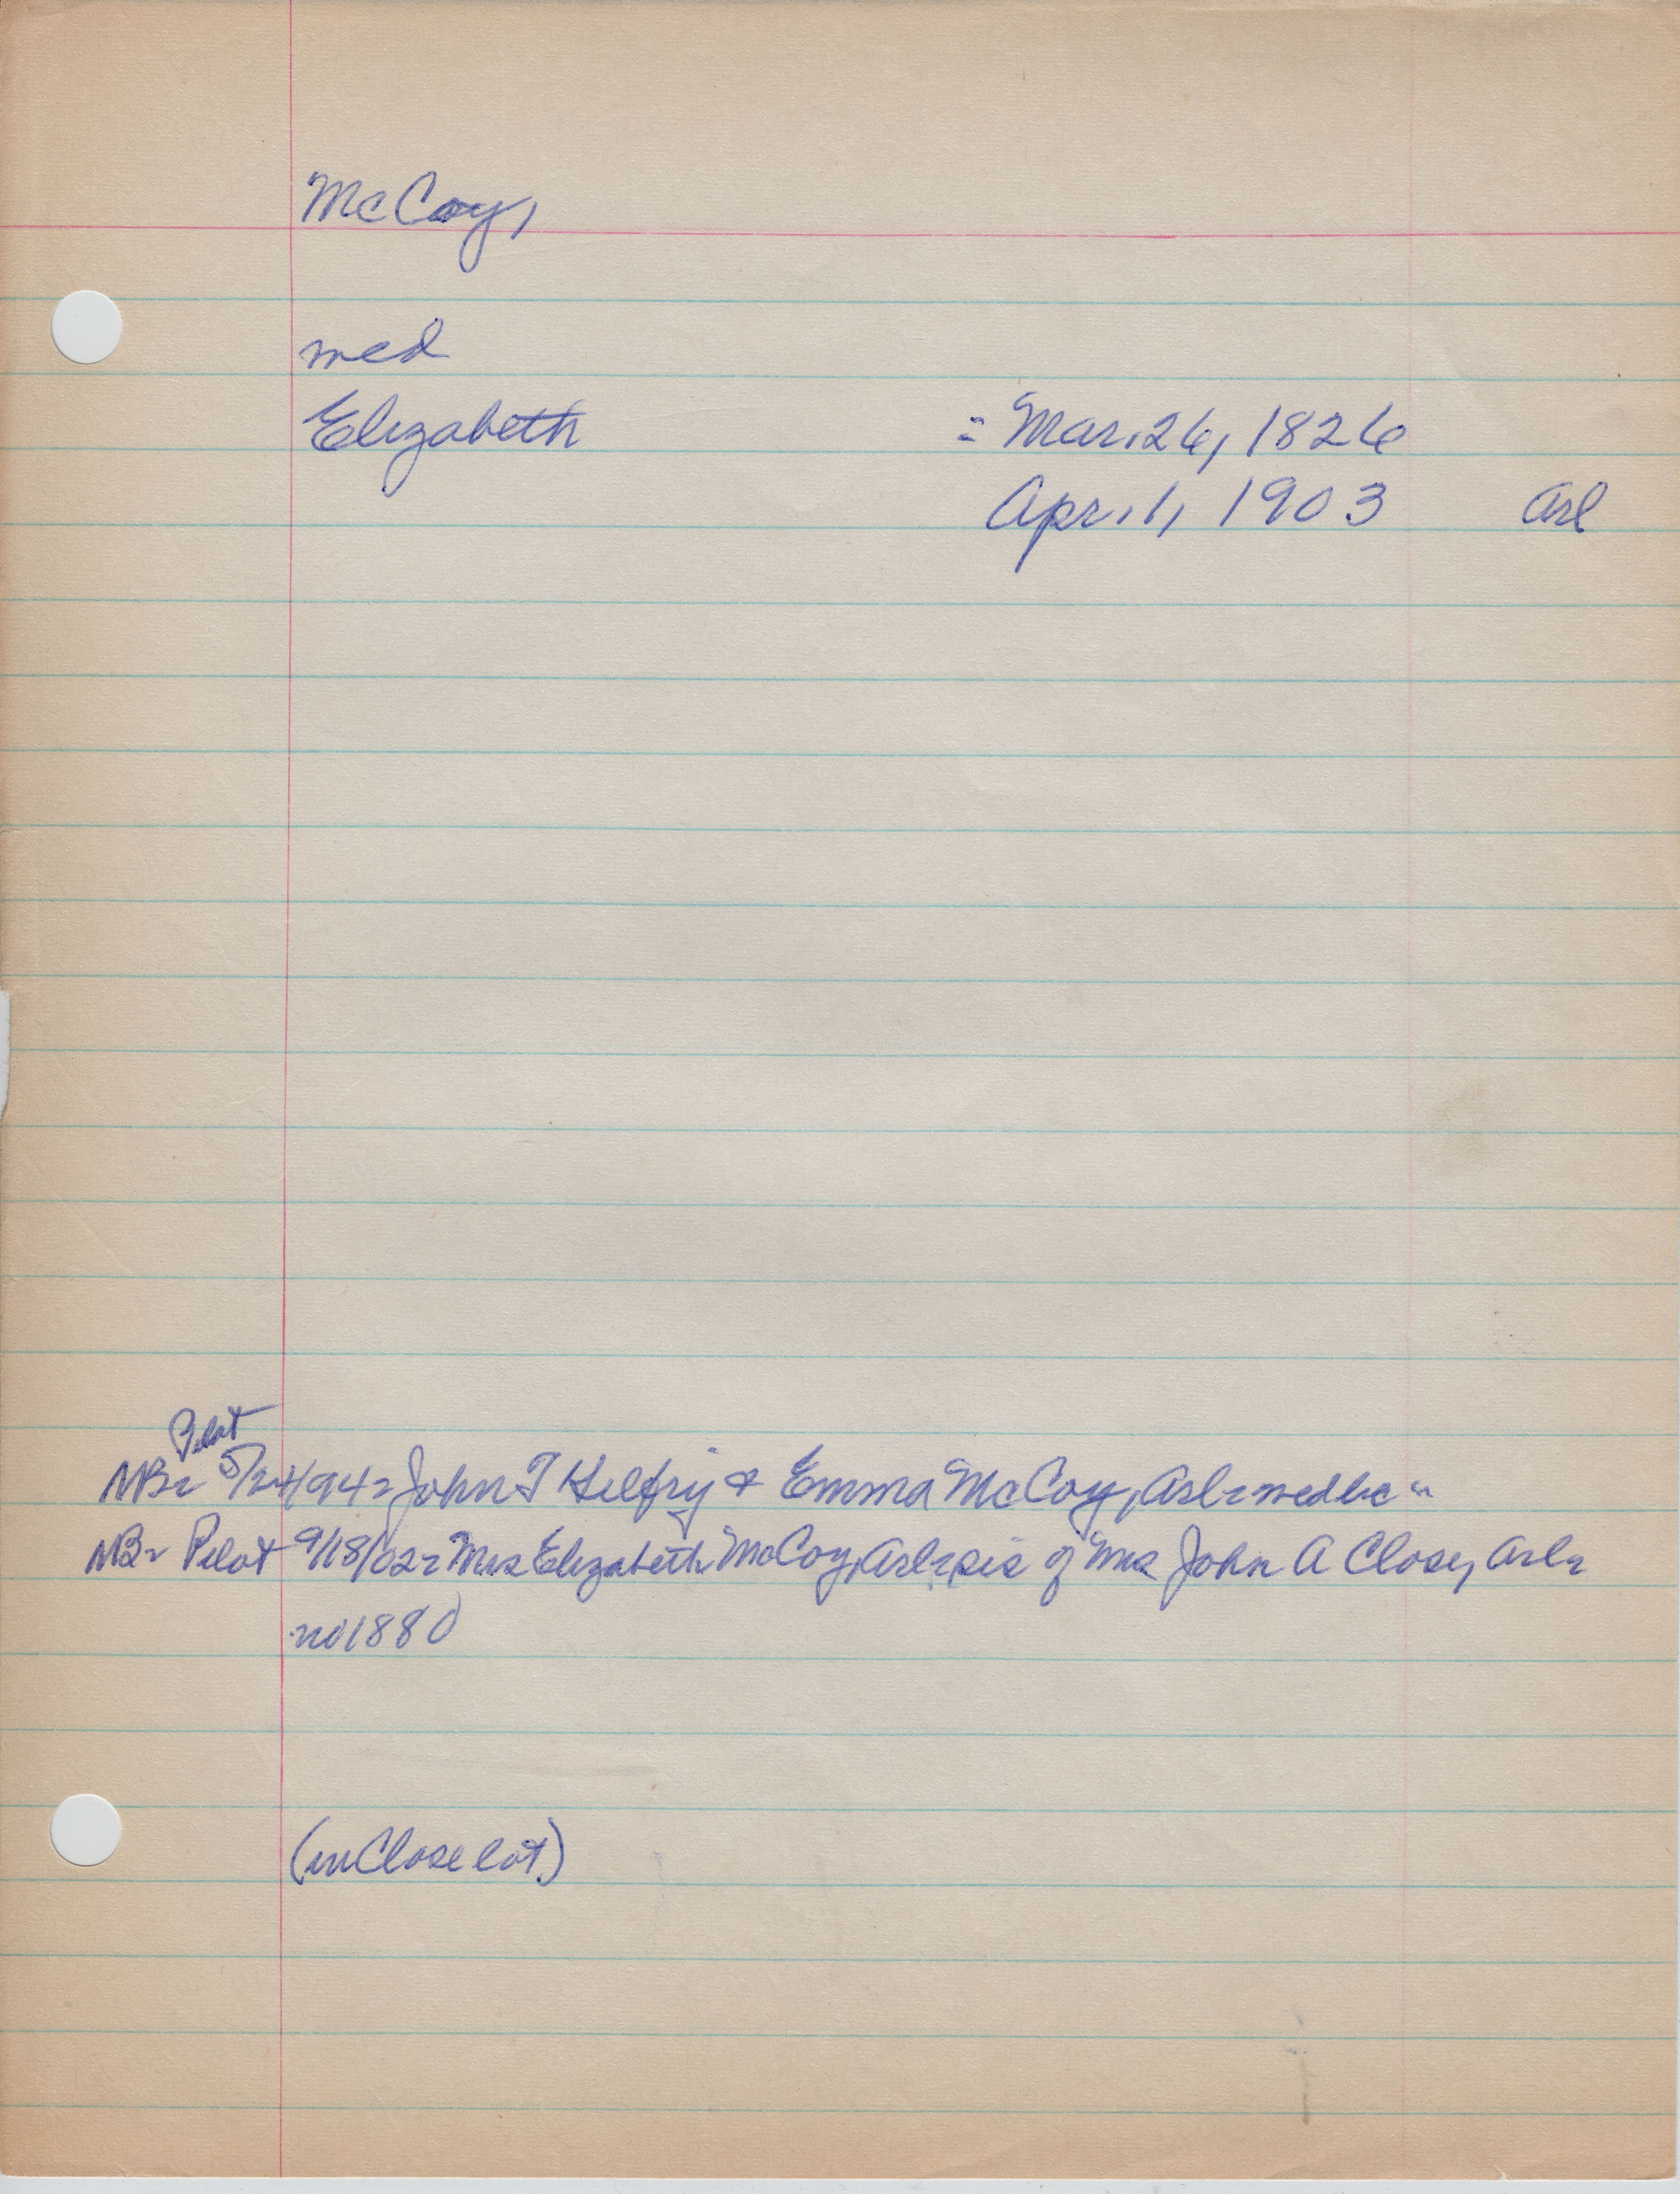 McCoy,
med
Elizabeth = Mar. 26, 1826
Apr. 1, 1903 Arl
Pilot
NB- 5/24/94- John T Helfry & Emma McCoy, Arl- med lic
NB- Pilot 9/18/02- Mrs Elizabeth McCoy, Arl- sis of Mrs John A Close, Arl-
no 1880
(in Close lot)